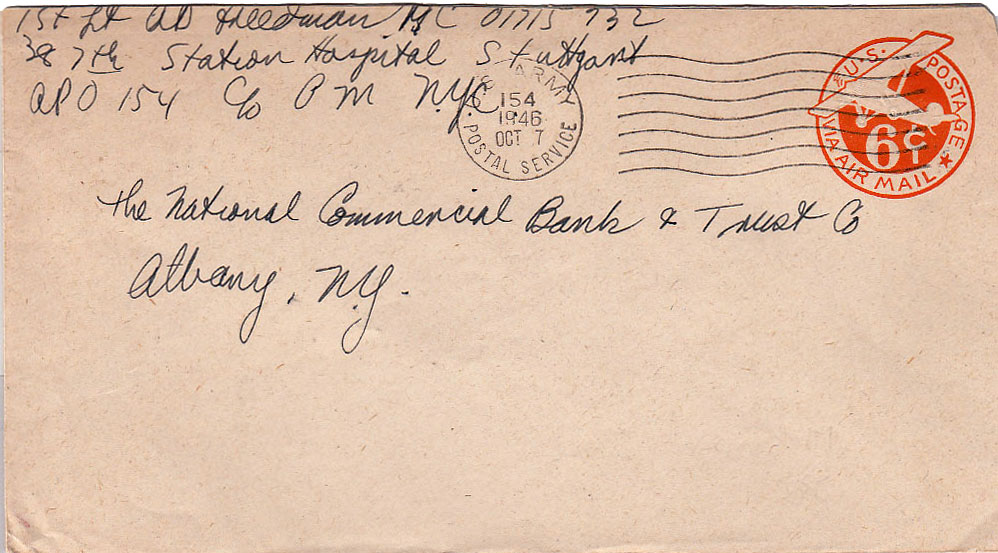 1st Lt AD Freedman, MC 01715732
387th Station Hospital Stuttgart
APO 154 c/o P M NYC.
U.S. ARMY
154
1946
OCT 7
POSTAL SERVICE
U.S. POSTAGE
6¢
VIA AIR MAIL
The National Commercial Bank & Trust Co
Albany, N.Y.